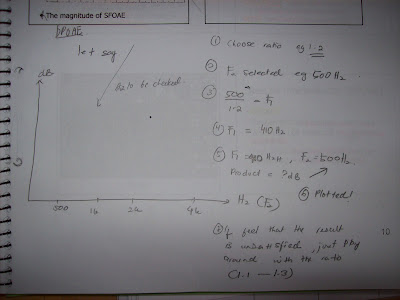 The magnitude of SFOAE
DPOAE
1st seg
Hz to be checked.
dB
500
1k
2k
4k
Hz (F2)
① Choose ratio eg 1.2
② F2 selected eg 500Hz.
③ 500 / 1.2 = F1
④ F1 = 410Hz
⑤ F1 = 410Hz, F2 = 500Hz.
Product = ? dB
⑥ Plotted!
feel that the result
is unsatisfied, just play
around with the ratio
(1.1 — 1.3)
10